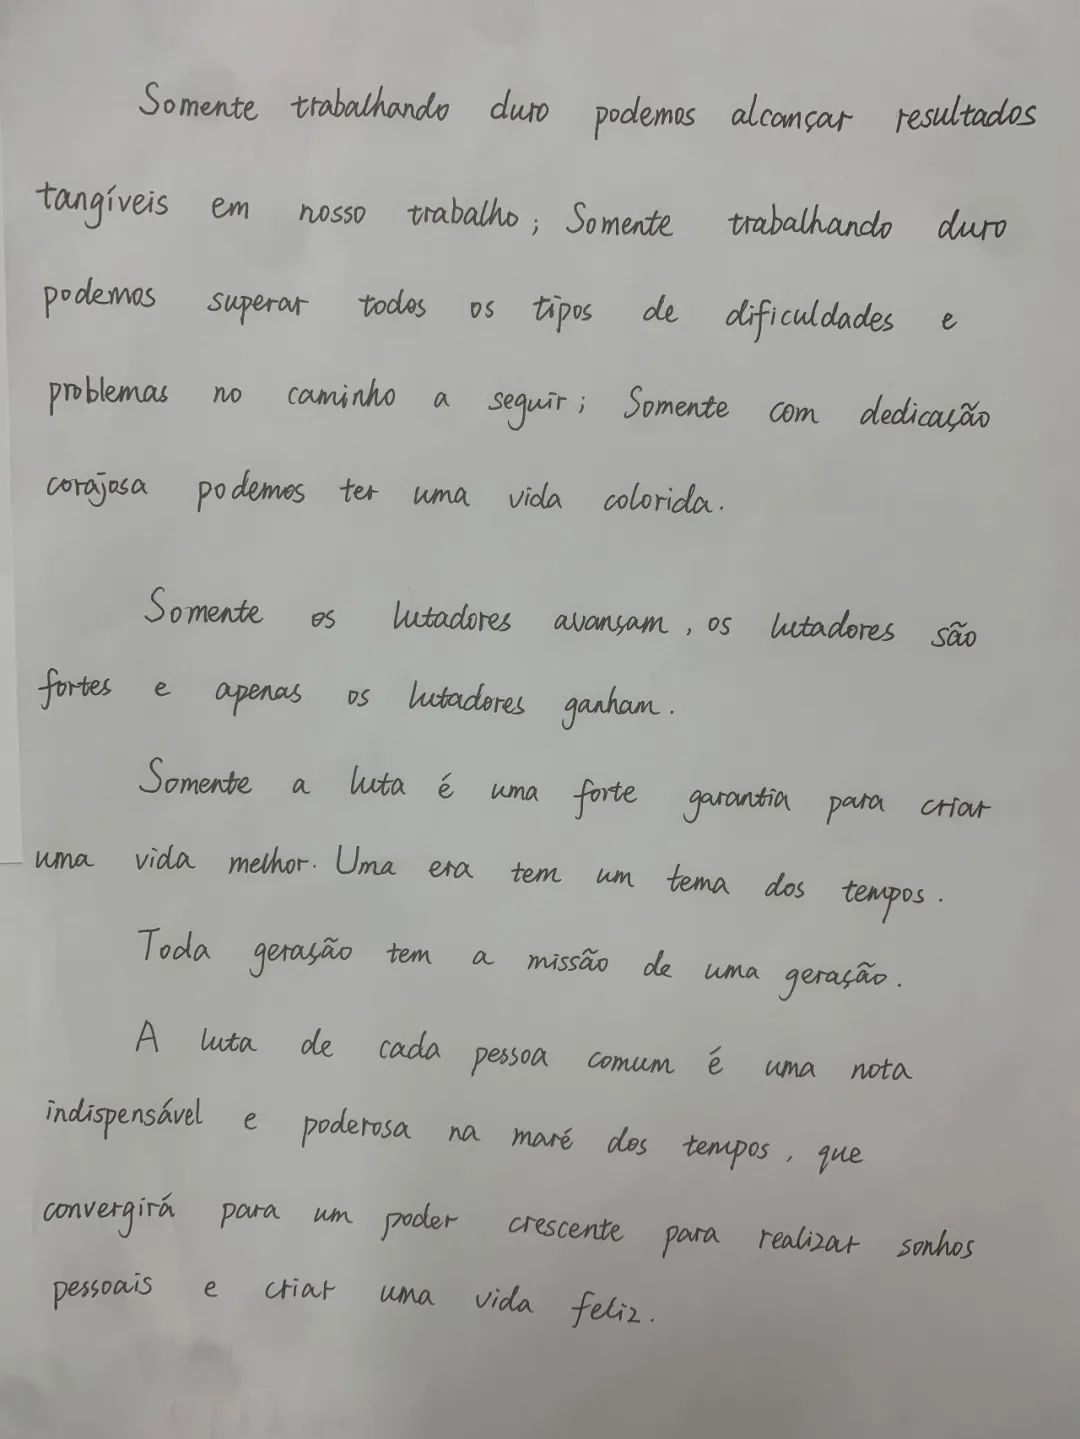 Somente trabalhando duro podemos alcançar resultados
tangíveis em nosso trabalho; Somente trabalhando duro
podemos superar todos os tipos de dificuldades e
problemas no caminho a seguir; Somente com dedicação
corajosa podemos ter uma vida colorida.
Somente os lutadores avansam, os lutadores são
fortes e apenas os lutadores ganham.
Somente a luta é uma forte garantia para criar
uma vida melhor. Uma era tem um tema dos tempos.
Toda geração tem a missão de uma geração.
A luta de cada pessoa comum é uma nota
indispensável e poderosa na maré dos tempos, que
convergirá para um poder crescente para realizar sonhos
pessoais e criar uma vida feliz.